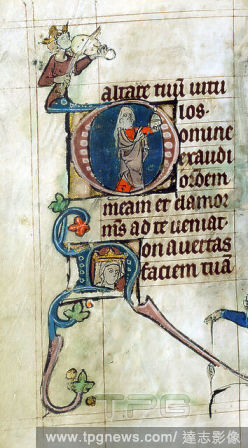 altare tuū uitu
los.
omine
exaudi
orōem
meam et clamor
m̄s ad te ueniat
on auertas
faciem tuā
TPG
www.tpgnews.com/達志影像